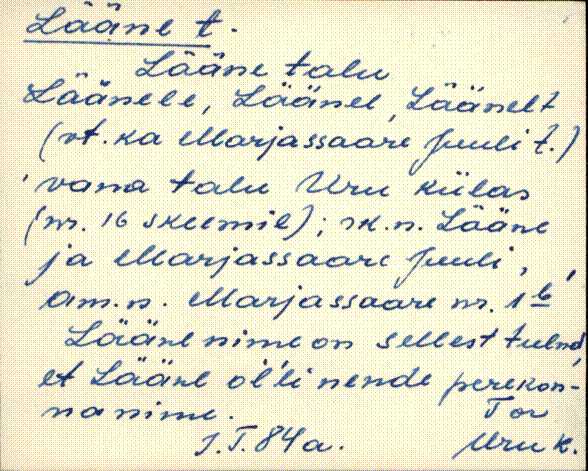 Lääne t.
Lääne talu
Läänele, Läänel, Läänelt
(vt. ka Marjassaare Juuli t.)
vana talu Uru külas
(nr. 16 skeemil); rk.n. Lääne
ja Marjassaare Juuli,
am.n. Marjassaare nr. 1b
Lääne nime on sellest tulnd,
et Lääne ol'li nende perekon-
nanime.
Tor
J.T. 84 a. Uru k.